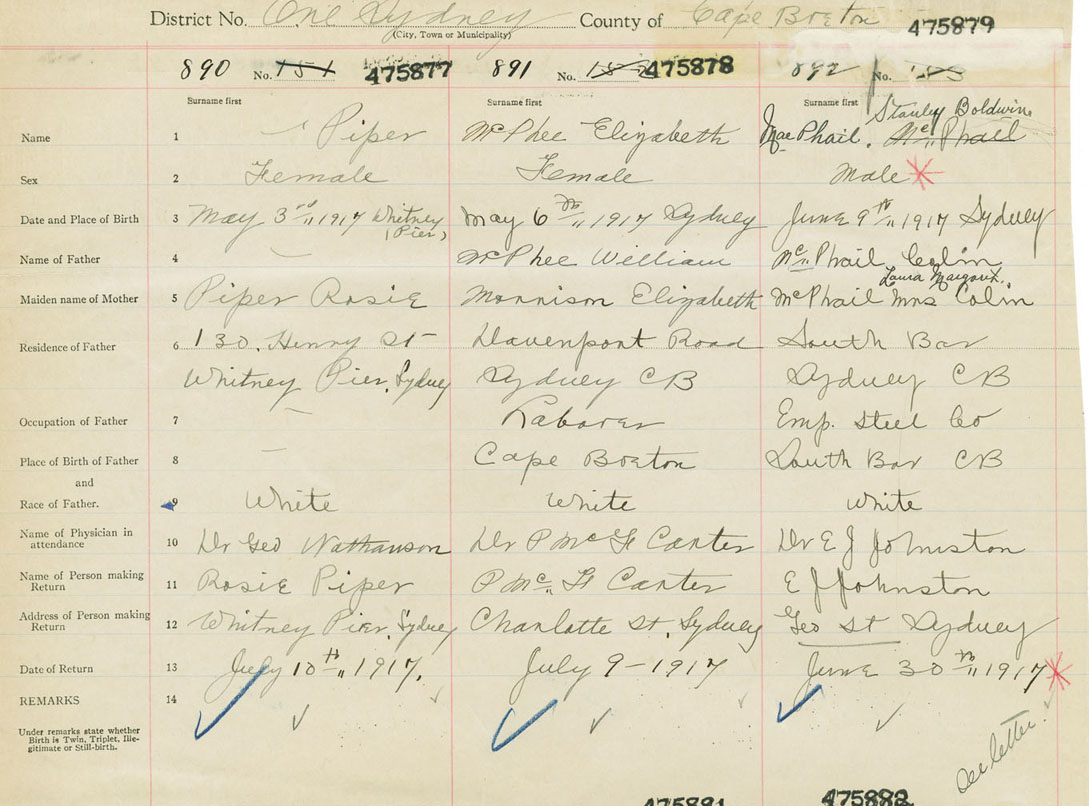 District No. One Sydney County of Cape Breton
(City, Town or Municipality)
475879
890 No. 151 475877 891 No. 475878 892 No.
Surname first Surname first Surname first
Stanley Baldwin
Name 1 — Piper McPhee Elizabeth MacPhail. McPhail
Sex 2 Female Female Male
Date and Place of Birth 3 May 3rd 1917 Whitney May 6th 1917 Sydney June 9th 1917 Sydney
(Pier)
Name of Father 4 — McPhee William McPhail Colin
Laura Margaret.
Maiden name of Mother 5 Piper Rosie Morrison Elizabeth McPhail Mrs Colin
Residence of Father 6 130. Henry St Davenport Road South Bar
Whitney Pier, Sydney Sydney CB Sydney CB
Occupation of Father 7 — Laborer Emp. Steel Co
Place of Birth of Father 8 — Cape Breton South Bar CB
and
Race of Father. 9 White White White
Name of Physician in
attendance 10 Dr Geo Nathanson Dr P Mc F Carter Dr E J Johnston
Name of Person making
Return 11 Rosie Piper P Mc F Carter E J Johnston
Address of Person making
Return 12 Whitney Pier, Sydney Charlotte St, Sydney Geo St Sydney
Date of Return 13 July 10th 1917. July 9-1917 June 30th 1917
REMARKS 14
Under remarks state whether
Birth is Twin, Triplet, Ille-
gitimate or Still-birth.
See letter.
475881 475882